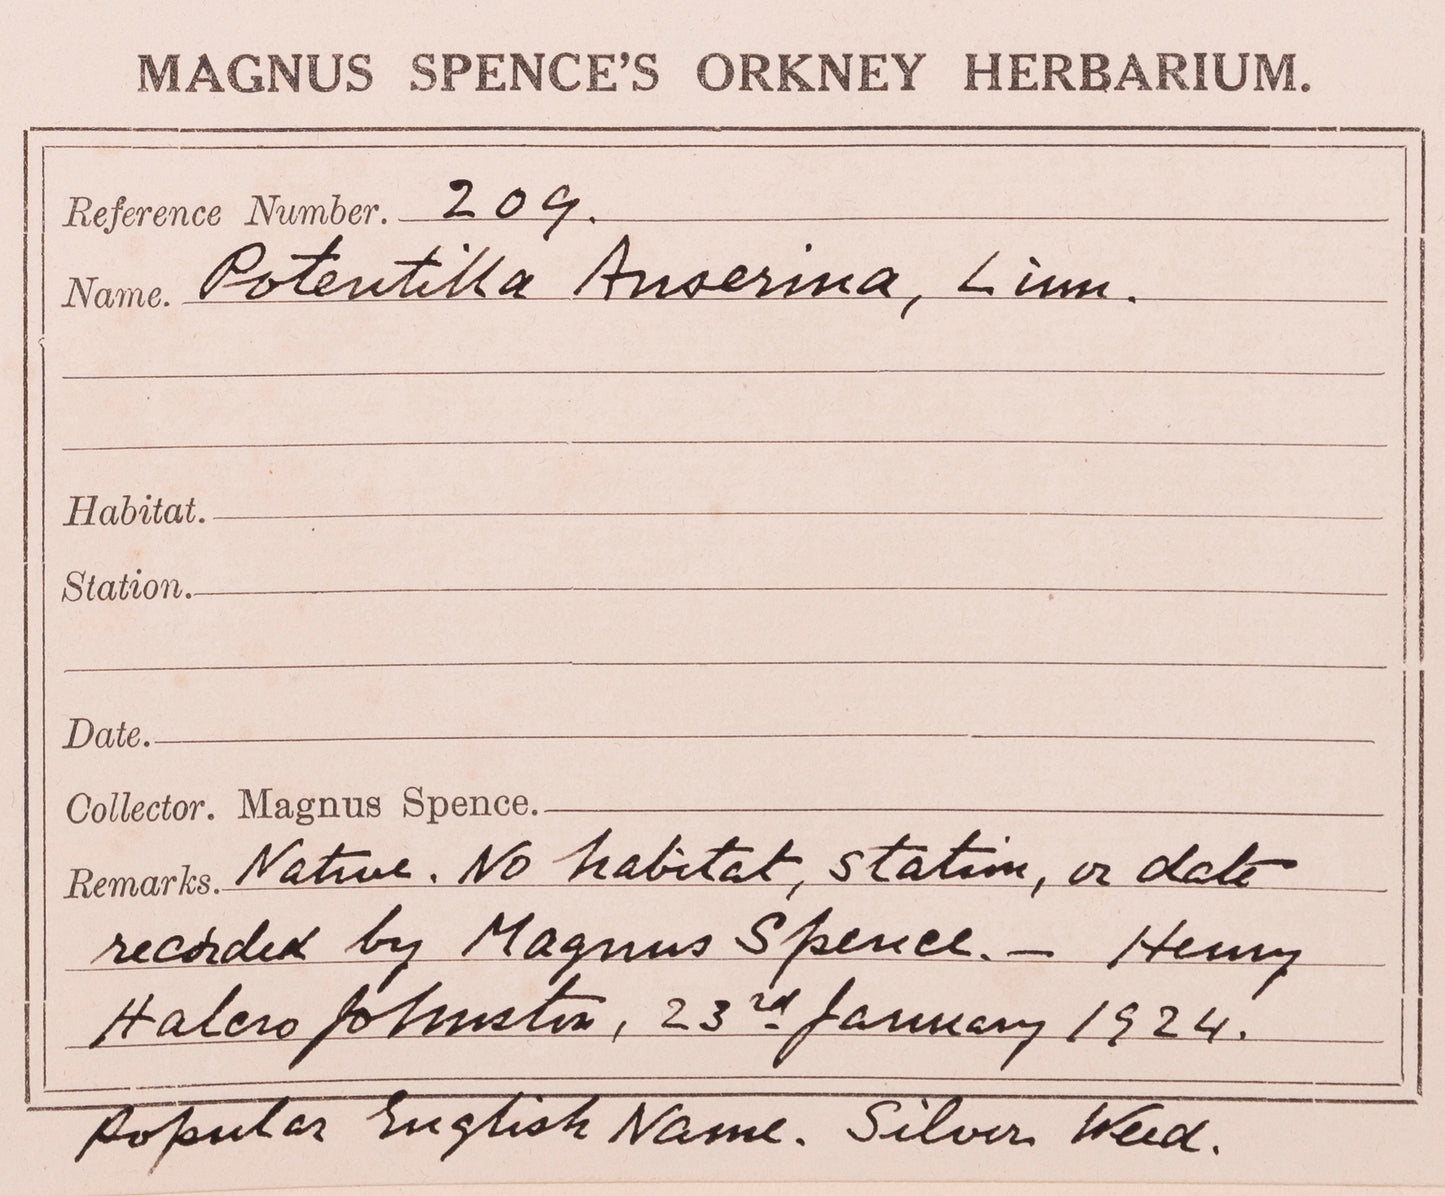 MAGNUS SPENCE'S ORKNEY HERBARIUM.
Reference Number. 209.
Name. Potentilla Anserina, Linn.
Habitat.
Station.
Date.
Collector. Magnus Spence.
Remarks. Native. No habitat, station, or date
recorded by Magnus Spence. — Henry
Halcro Johnston, 23rd January 1924.
Popular English Name. Silver Weed.